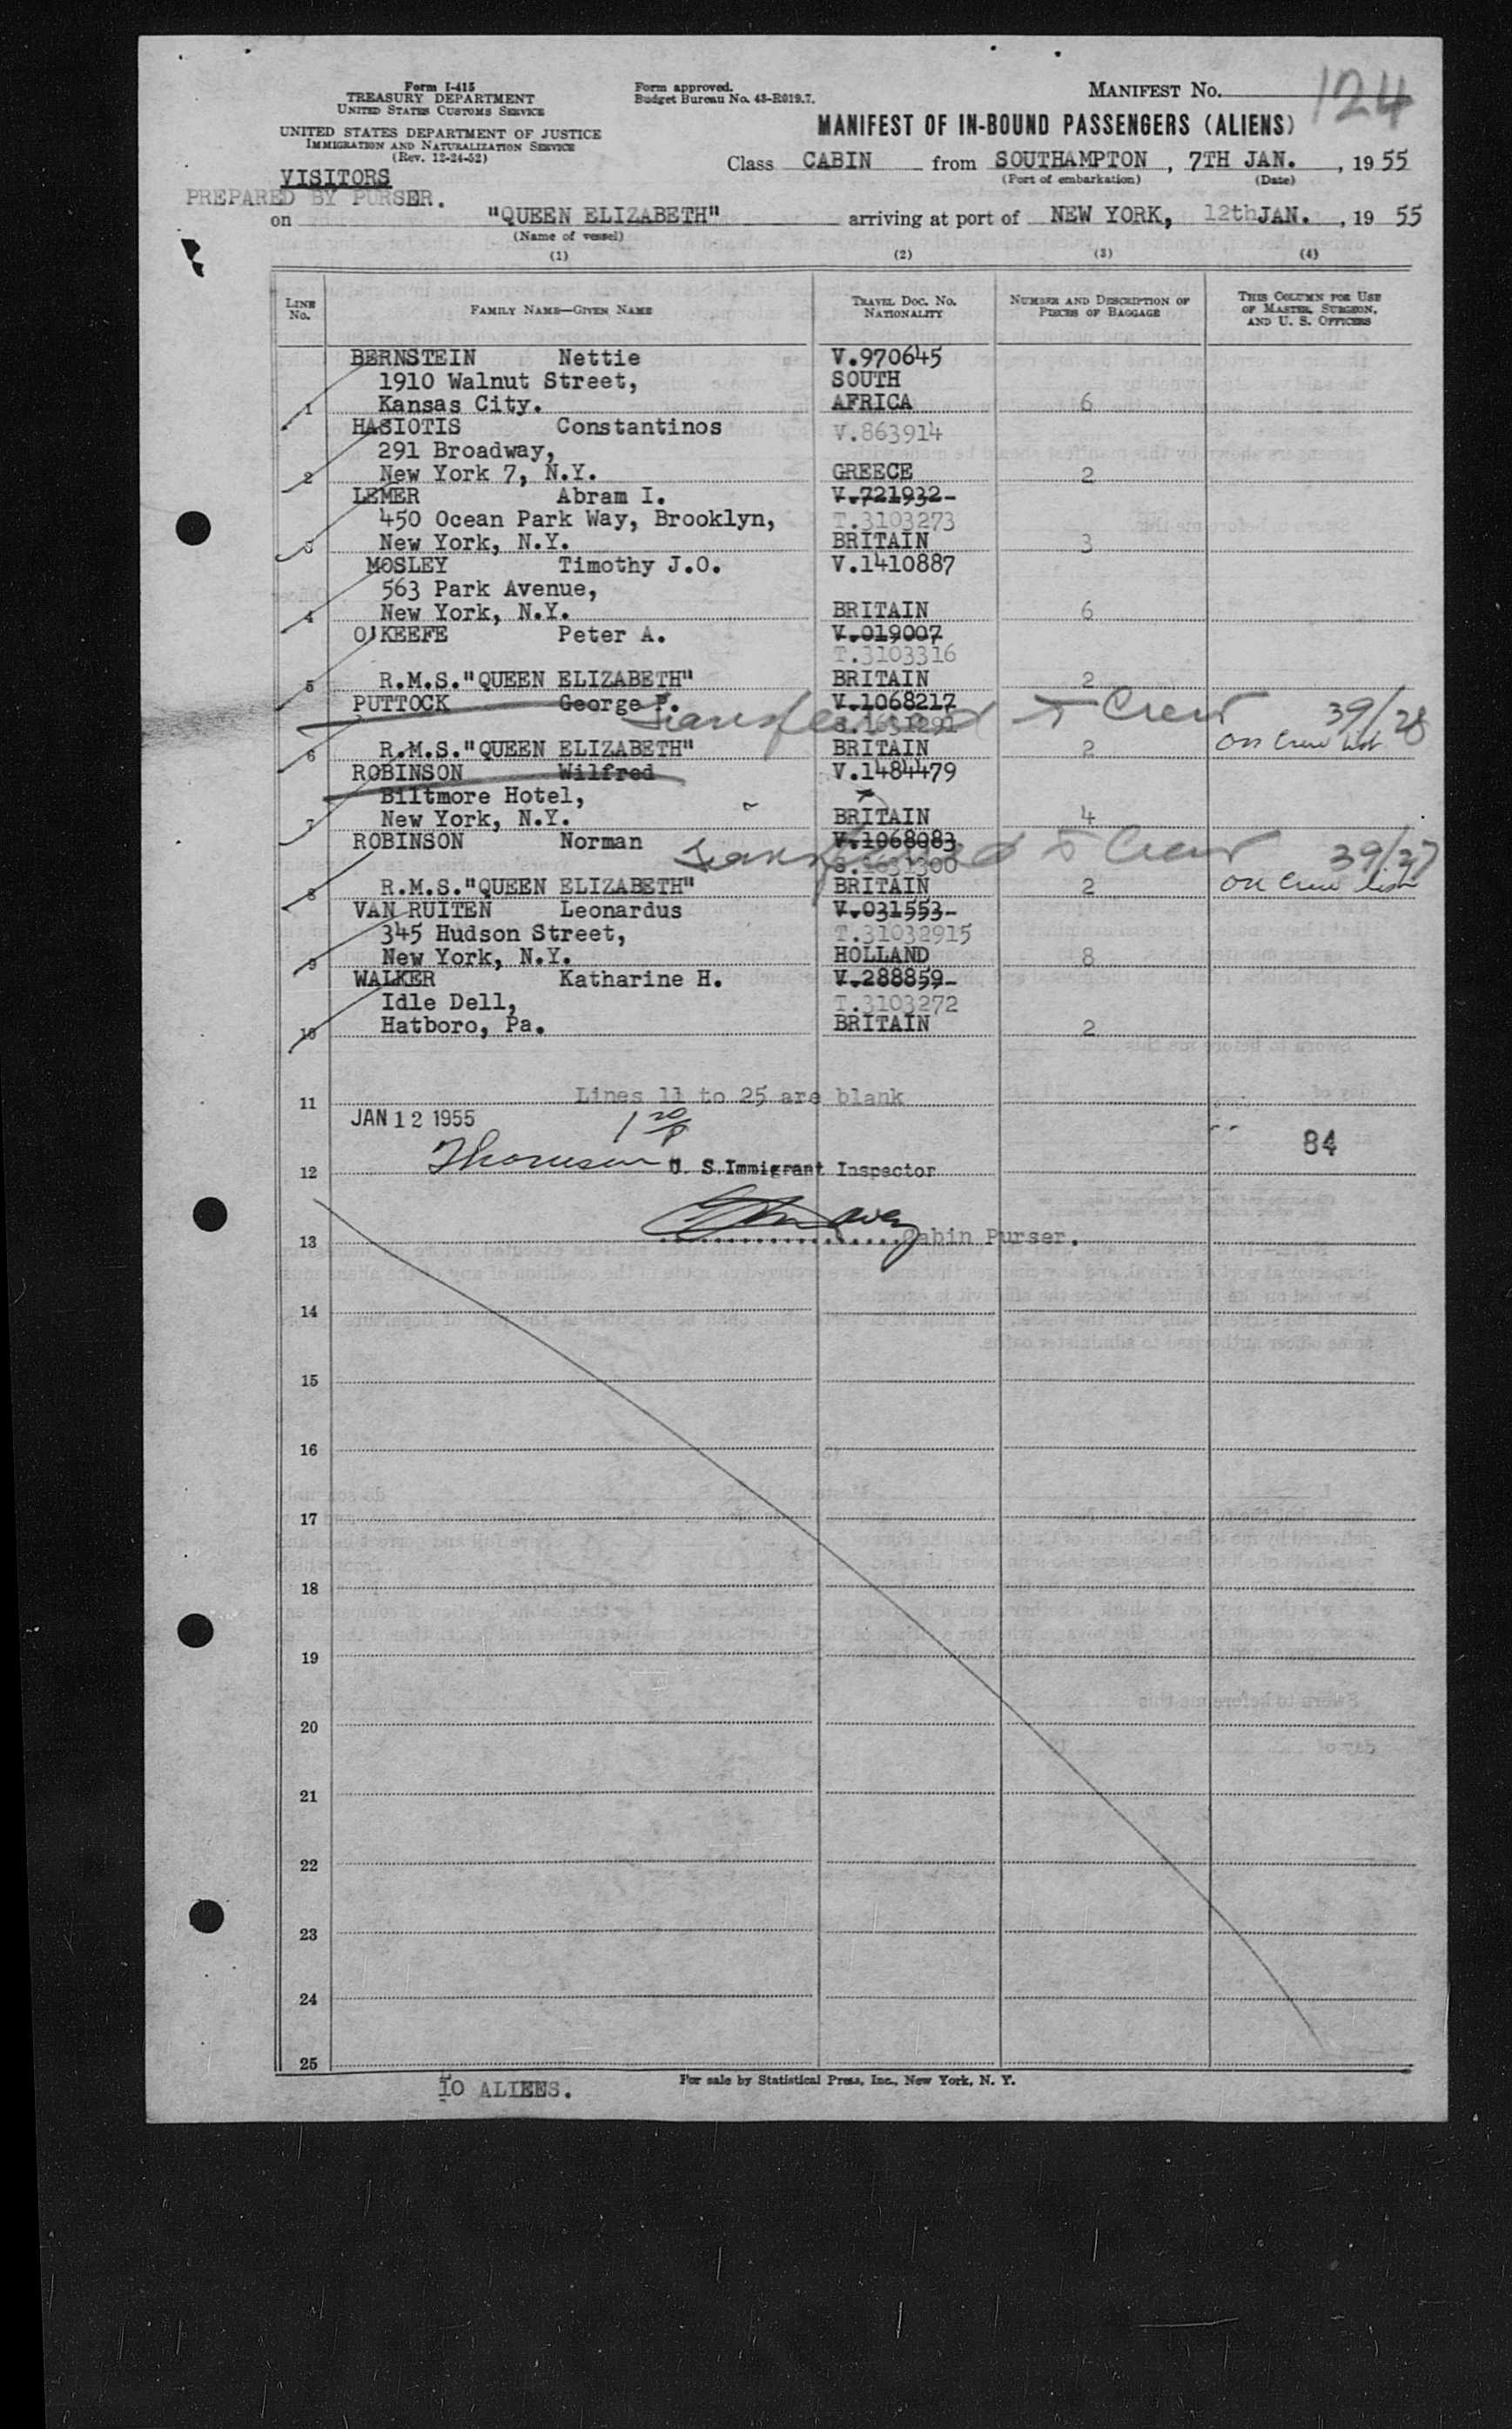 Form I-415
TREASURY DEPARTMENT
UNITED STATES CUSTOMS SERVICE
UNITED STATES DEPARTMENT OF JUSTICE
IMMIGRATION AND NATURALIZATION SERVICE
(Rev. 12-24-52)
VISITORS
PREPARED BY PURSER.
Form approved.
Budget Bureau No. 43-R019.7.
MANIFEST No. 124
MANIFEST OF IN-BOUND PASSENGERS (ALIENS)
Class CABIN from SOUTHAMPTON, 7TH JAN., 1955
(Port of embarkation) (Date)
on "QUEEN ELIZABETH" arriving at port of NEW YORK, 12th JAN., 19 55
(Name of vessel)
(1) (2) (3) (4)
LINE No. FAMILY NAME—GIVEN NAME TRAVEL DOC. No. NATIONALITY NUMBER AND DESCRIPTION OF PIECES OF BAGGAGE THIS COLUMN FOR USE OF MASTER, SURGEON, AND U. S. OFFICERS
BERNSTEIN Nettie V.970645
1910 Walnut Street, SOUTH
1 Kansas City. AFRICA 6
HASIOTIS Constantinos V.863914
291 Broadway,
2 New York 7, N.Y. GREECE 2
LEMER Abram I. V.721932
450 Ocean Park Way, Brooklyn, T.3103273
3 New York, N.Y. BRITAIN 3
MOSLEY Timothy J.O. V.1410887
563 Park Avenue,
4 New York, N.Y. BRITAIN 6
O'KEEFE Peter A. V.019007
T.3103316
5 R.M.S."QUEEN ELIZABETH" BRITAIN 2
PUTTOCK George F. V.1068217 Transferred to Crew 39/28
S.1631291
6 R.M.S."QUEEN ELIZABETH" BRITAIN 2 On Crew list
ROBINSON Wilfred V.1484479
Biltmore Hotel,
7 New York, N.Y. BRITAIN 4
ROBINSON Norman V.1068083 Transferred to Crew 39/37
S.1631300
8 R.M.S."QUEEN ELIZABETH" BRITAIN 2 On Crew list
VAN RUITEN Leonardus V.031553
345 Hudson Street, T.31032915
9 New York, N.Y. HOLLAND 8
WALKER Katharine H. V.288859
Idle Dell, T.3103272
10 Hatboro, Pa. BRITAIN 2
11 Lines 11 to 25 are blank
JAN 12 1955
84
12 U. S. Immigrant Inspector
13 Cabin Purser.
14
15
16
17
18
19
20
21
22
23
24
25
10 ALIENS.
For sale by Statistical Press, Inc., New York, N. Y.